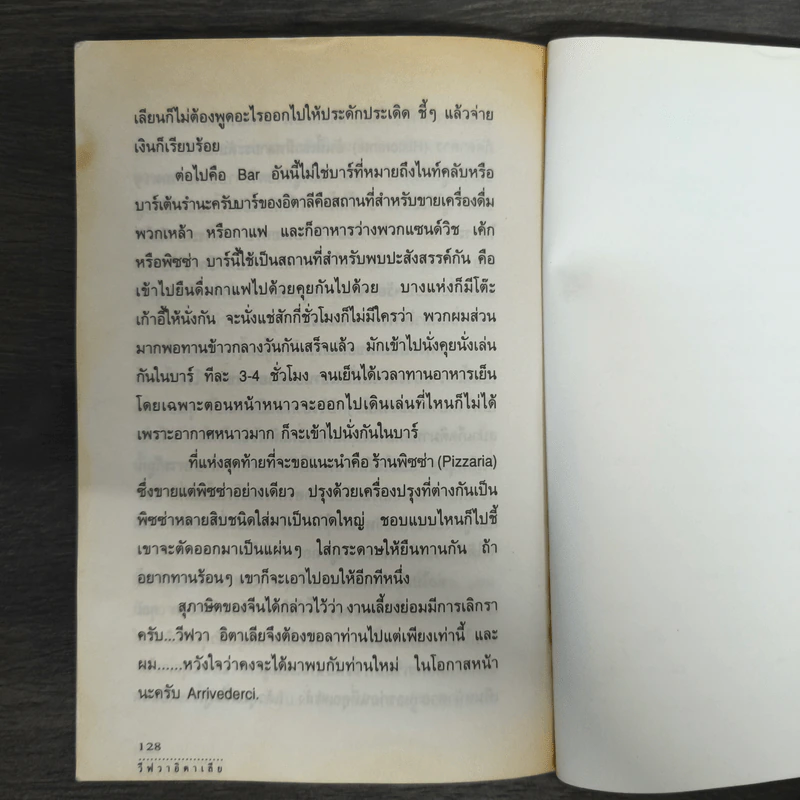 เลียนก็ไม่ต้องพูดอะไรออกไปให้ประดักประเดิด ชี้ๆ แล้วจ่าย
เงินก็เรียบร้อย
ต่อไปคือ Bar อันนี้ไม่ใช่บาร์ที่หมายถึงไนท์คลับหรือ
บาร์เต้นรำนะครับบาร์ของอิตาลีคือสถานที่สำหรับขายเครื่องดื่ม
พวกเหล้า หรือกาแฟ และก็อาหารว่างพวกแซนด์วิช เค้ก
หรือพิซซ่า บาร์นี้ใช้เป็นสถานที่สำหรับพบปะสังสรรค์กัน คือ
เข้าไปยืนดื่มกาแฟไปด้วยคุยกันไปด้วย บางแห่งก็มีโต๊ะ
เก้าอี้ให้นั่งกัน จะนั่งแช่สักกี่ชั่วโมงก็ไม่มีใครว่า พวกผมส่วน
มากพอทานข้าวกลางวันกันเสร็จแล้ว มักเข้าไปนั่งคุยนั่งเล่น
กันในบาร์ ทีละ 3-4 ชั่วโมง จนเย็นได้เวลาทานอาหารเย็น
โดยเฉพาะตอนหน้าหนาวจะออกไปเดินเล่นที่ไหนก็ไม่ได้
เพราะอากาศหนาวมาก ก็จะเข้าไปนั่งกันในบาร์
ที่แห่งสุดท้ายที่จะขอแนะนำคือ ร้านพิซซ่า (Pizzaria)
ซึ่งขายแต่พิซซ่าอย่างเดียว ปรุงด้วยเครื่องปรุงที่ต่างกันเป็น
พิซซ่าหลายสิบชนิดใส่มาเป็นถาดใหญ่ ชอบแบบไหนก็ไปชี้
เขาจะตัดออกมาเป็นแผ่นๆ ใส่กระดาษให้ยืนทานกัน ถ้า
อยากทานร้อนๆ เขาก็จะเอาไปอบให้อีกทีหนึ่ง
สุภาษิตของจีนได้กล่าวไว้ว่า งานเลี้ยงย่อมมีการเลิกรา
ครับ...วีฟวา อิตาเลียจึงต้องขอลาท่านไปแต่เพียงเท่านี้ และ
ผม......หวังใจว่าคงจะได้มาพบกับท่านใหม่ ในโอกาสหน้า
นะครับ Arrivederci.
128
วีฟวาอิตาเลีย